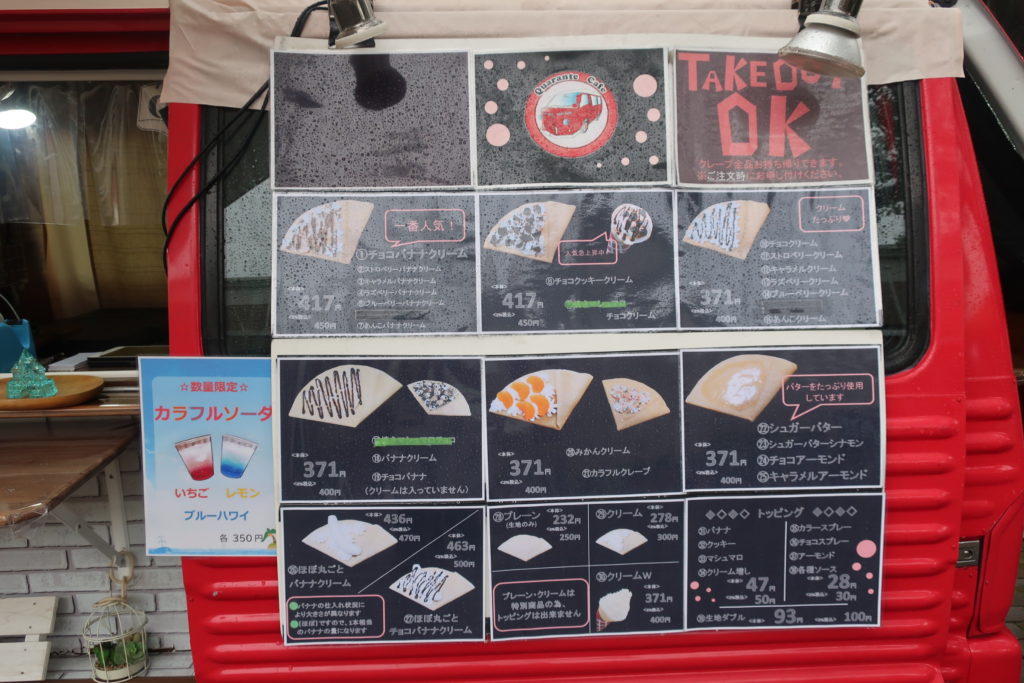 Quarante Cafe
TAKEOUT
OK
クレープ全品お持ち帰りできます。
※ご注文時にお申し付けください。
一番人気!
①チョコバナナクリーム
②ストロベリーバナナクリーム
③キャラメルバナナクリーム
④ラズベリーバナナクリーム
⑤ブルーベリーバナナクリーム
⑦あんこバナナクリーム
<本体>
417円
<8%税込>
450円
人気急上昇中!
⑧チョコクッキークリーム
チョコクリーム
<本体>
417円
<8%税込>
450円
クリーム
たっぷり
⑩チョコクリーム
⑪ストロベリークリーム
⑫キャラメルクリーム
⑬ラズベリークリーム
⑭ブルーベリークリーム
⑯あんこクリーム
<本体>
371円
<8%税込>
400円
☆数量限定☆
カラフルソーダ
いちご
レモン
ブルーハワイ
各 350円
⑱バナナクリーム
⑲チョコバナナ
(クリームは入っていません)
<本体>
371円
<8%税込>
400円
⑳みかんクリーム
㉑カラフルクレープ
<本体>
371円
<8%税込>
400円
バターをたっぷり使用
しています
㉒シュガーバター
㉓シュガーバターシナモン
㉔チョコアーモンド
㉕キャラメルアーモンド
<本体>
371円
<8%税込>
400円
<本体>
436円
<8%税込>
470円
㉖ほぼ丸ごと
バナナクリーム
<本体>
463円
<8%税込>
500円
㉗ほぼ丸ごと
チョコバナナクリーム
バナナの仕入れ状況に
より大きさが異なります
(ほぼ)ですので、1本相当
のバナナの量になります
㉘プレーン
(生地のみ)
<本体>
232円
<8%税込>
250円
㉙クリーム
<本体>
278円
<8%税込>
300円
㉚クリームW
<本体>
371円
<8%税込>
400円
プレーン・クリームは
特別商品の為、
トッピングは出来ません
◇◆◇◆ トッピング ◆◇◆◇
㉛バナナ
㉜クッキー
㉝マシュマロ
㉞クリーム増し
<本体>
47円
<8%税込>
50円
㉟カラースプレー
㊱チョコスプレー
㊲アーモンド
㊳各種ソース
<本体>
28円
<8%税込>
30円
㊴生地ダブル
<本体>
93円
<8%税込>
100円